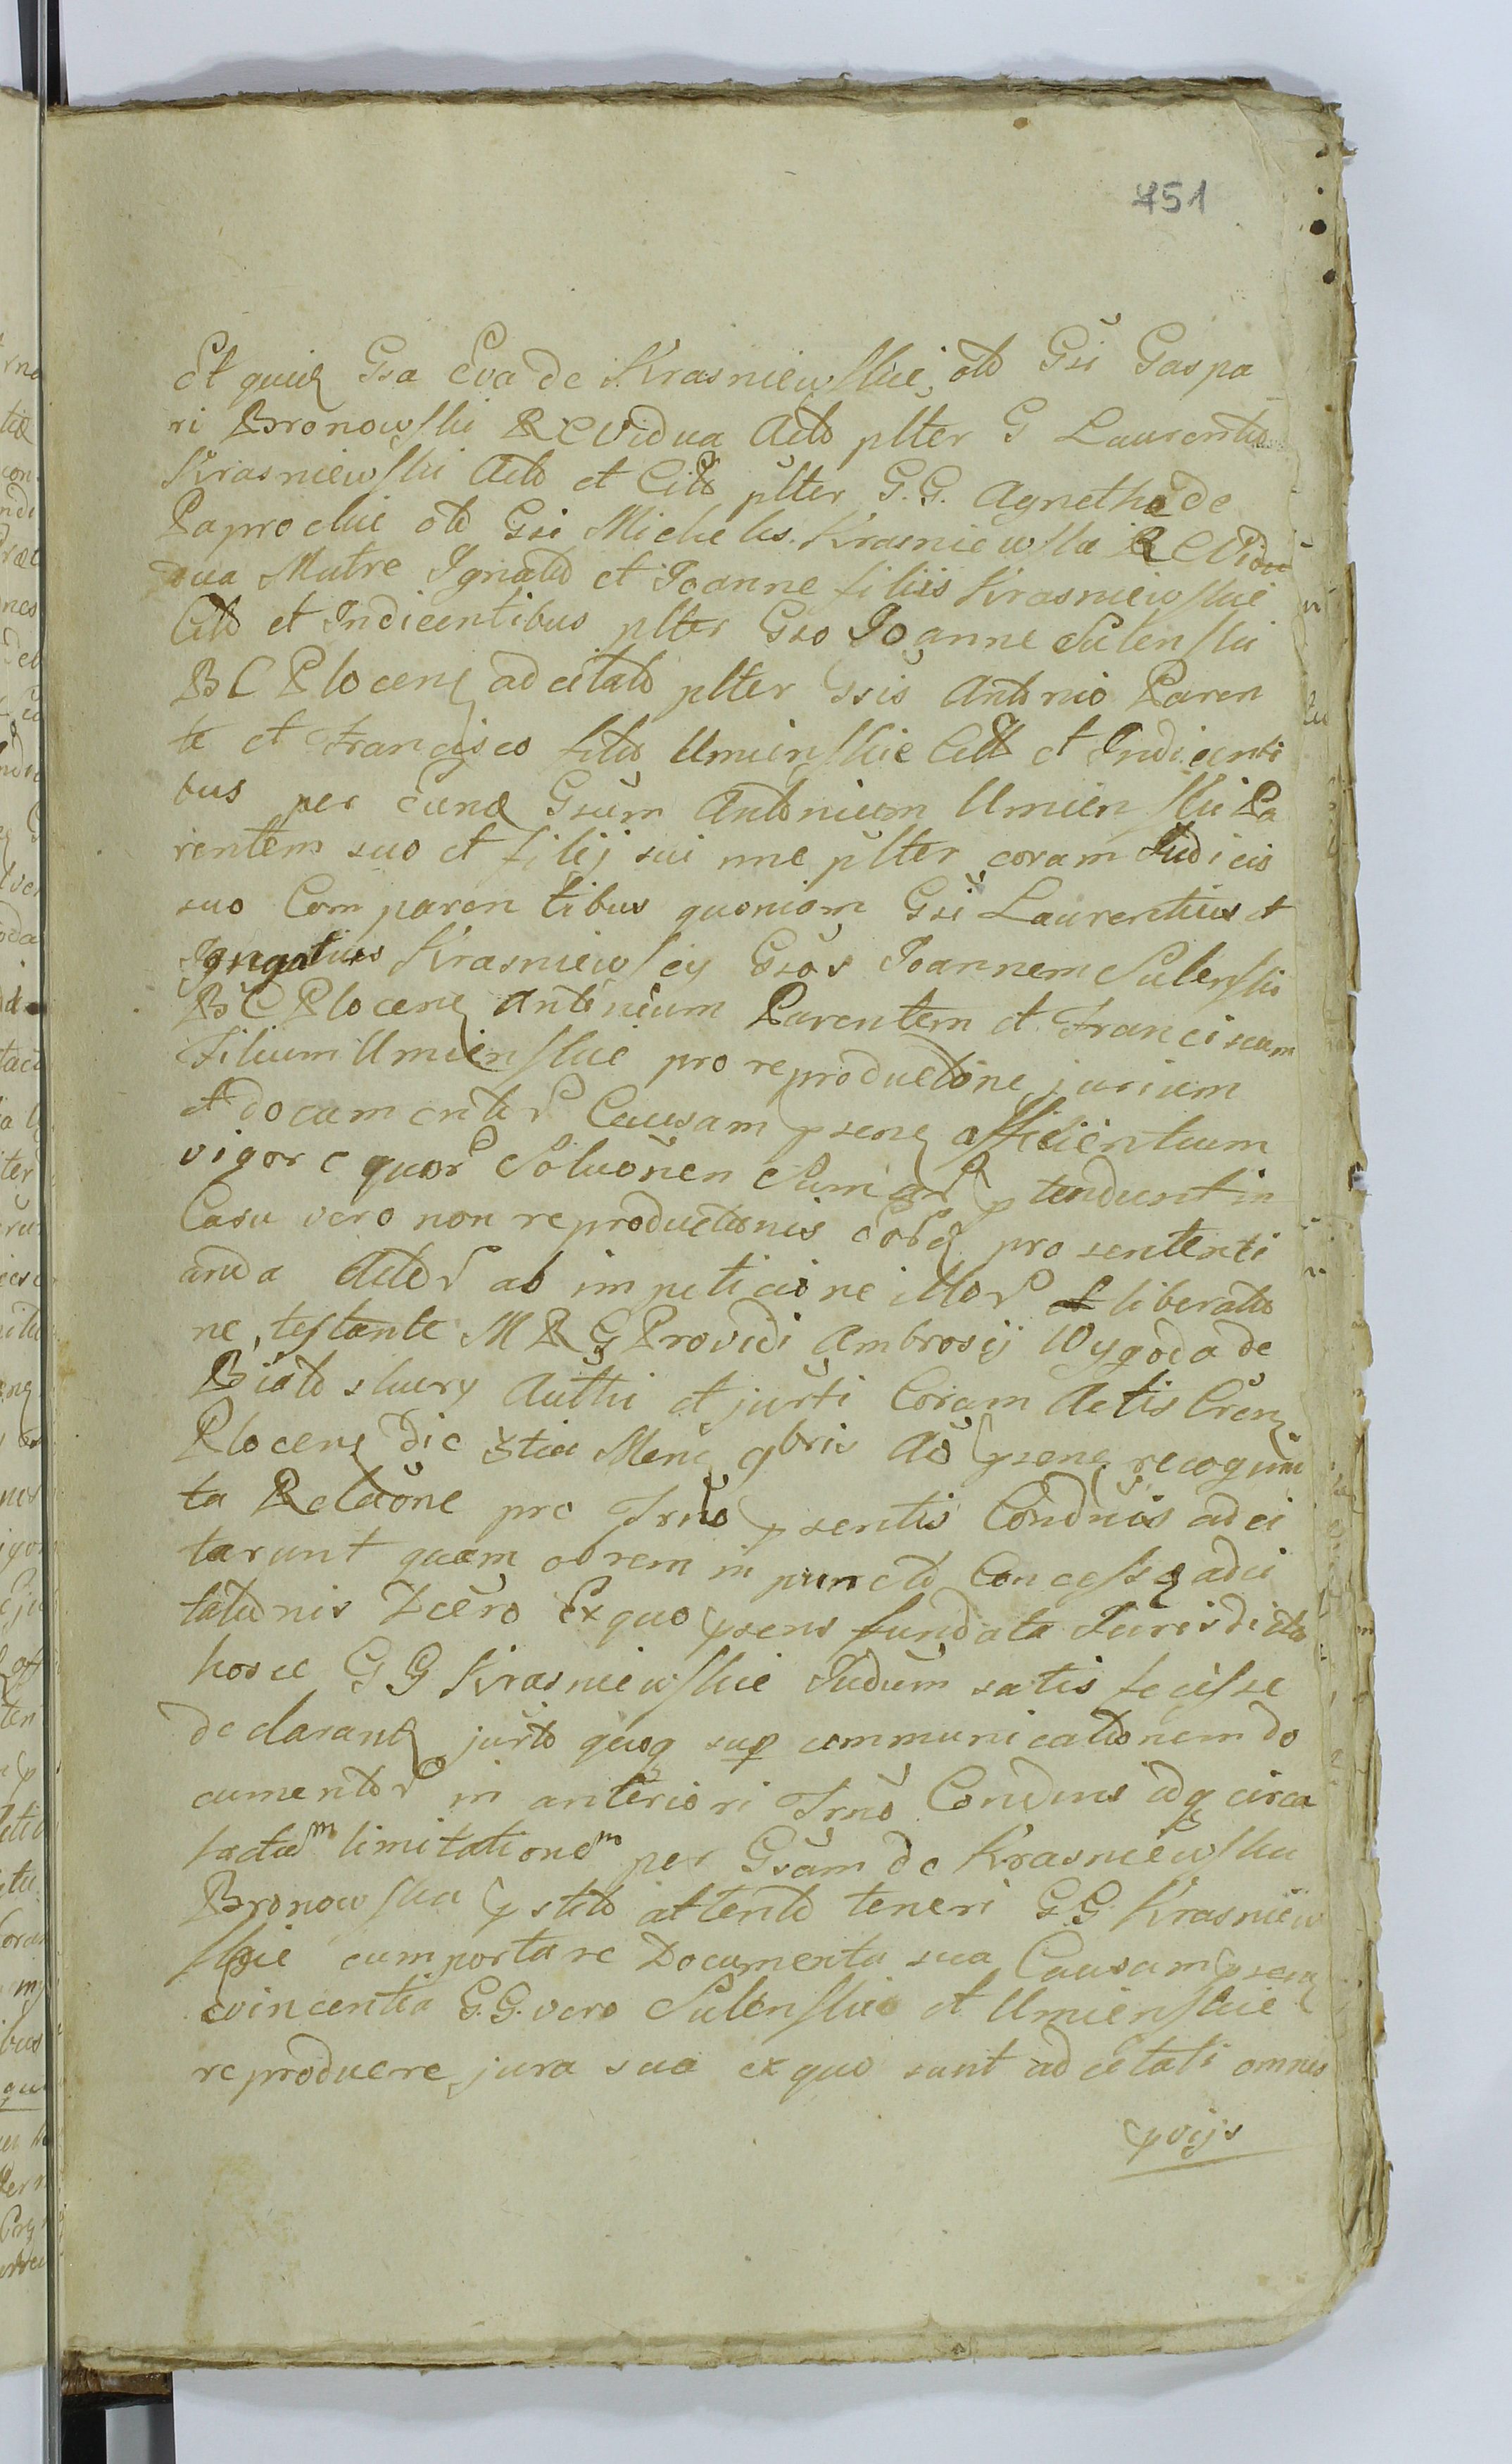 451
Et quidẽ Gsa Eva de Krasniewskie, olỡ Gsi Gaspa
ri Bronowski R C Vidua Actõ plter G Laurentio
Krasniewski Actõ et Citõ plter G. G. Agnetha de
Paprockie olỡ Gsi Michaelis Krasniewski R C Vidu
dua Matre Ignatio et Joanne filiis Krasniewskie
Citõ et Indicentibus plter Gso Joanne Sulenski
B C Plocenẽ adcitato plter Gsis Antonio Paren
te et Francisco filio Umienskie Citõ et Indicenti
bus per eund Gsum Antonium Umienski Pa
rentem suo et filij sui nne plter coram Judicio
suo Comparentibus quoniam Gsi Laurentius et
Ignatius Krasniewscy Gsos Joannem Sulenski
B C Plocenẽ Antonium Parentem et Franciscum
Filium Umienskie pro reproductione jurium
et documentor Causam psenẽ afficientium
vigore quor Soluõnem Sumar ptendunt in
Casu vero non reproductionis eorẽ pro sententi
anda Actor ab impeticione illor liberatio
ne, testante M R G Providi Ambrosij Wygoda de
Białoskury Authi et jurti Coram Actis Crẽn
Plocenẽ die 3tia Menẽ 9bris Aõ psenẽ recogni
ta Relaõne pro Trño psentis Condñis adci
tarunt quam obrem in puncto Concessẽ adci
tationis Dcero Ex quo psens fundata Jurisdictio
hosce G G Krasniewskie Judum satis fecisse
declarant jurto quoq sup communicationem do
cumentor in anteriori Trño Condnis idq circa
factam limitationem per Gsam de Krasniewska
Bronowska pstito attento teneri G.G. Krasniew
skie cumportare Documenta sua Causam psenẽ
evincentia G. G. vero Sulenskie et Umienskie
reproducere jura sua ex quo sunt adcitati omnes
pvijs